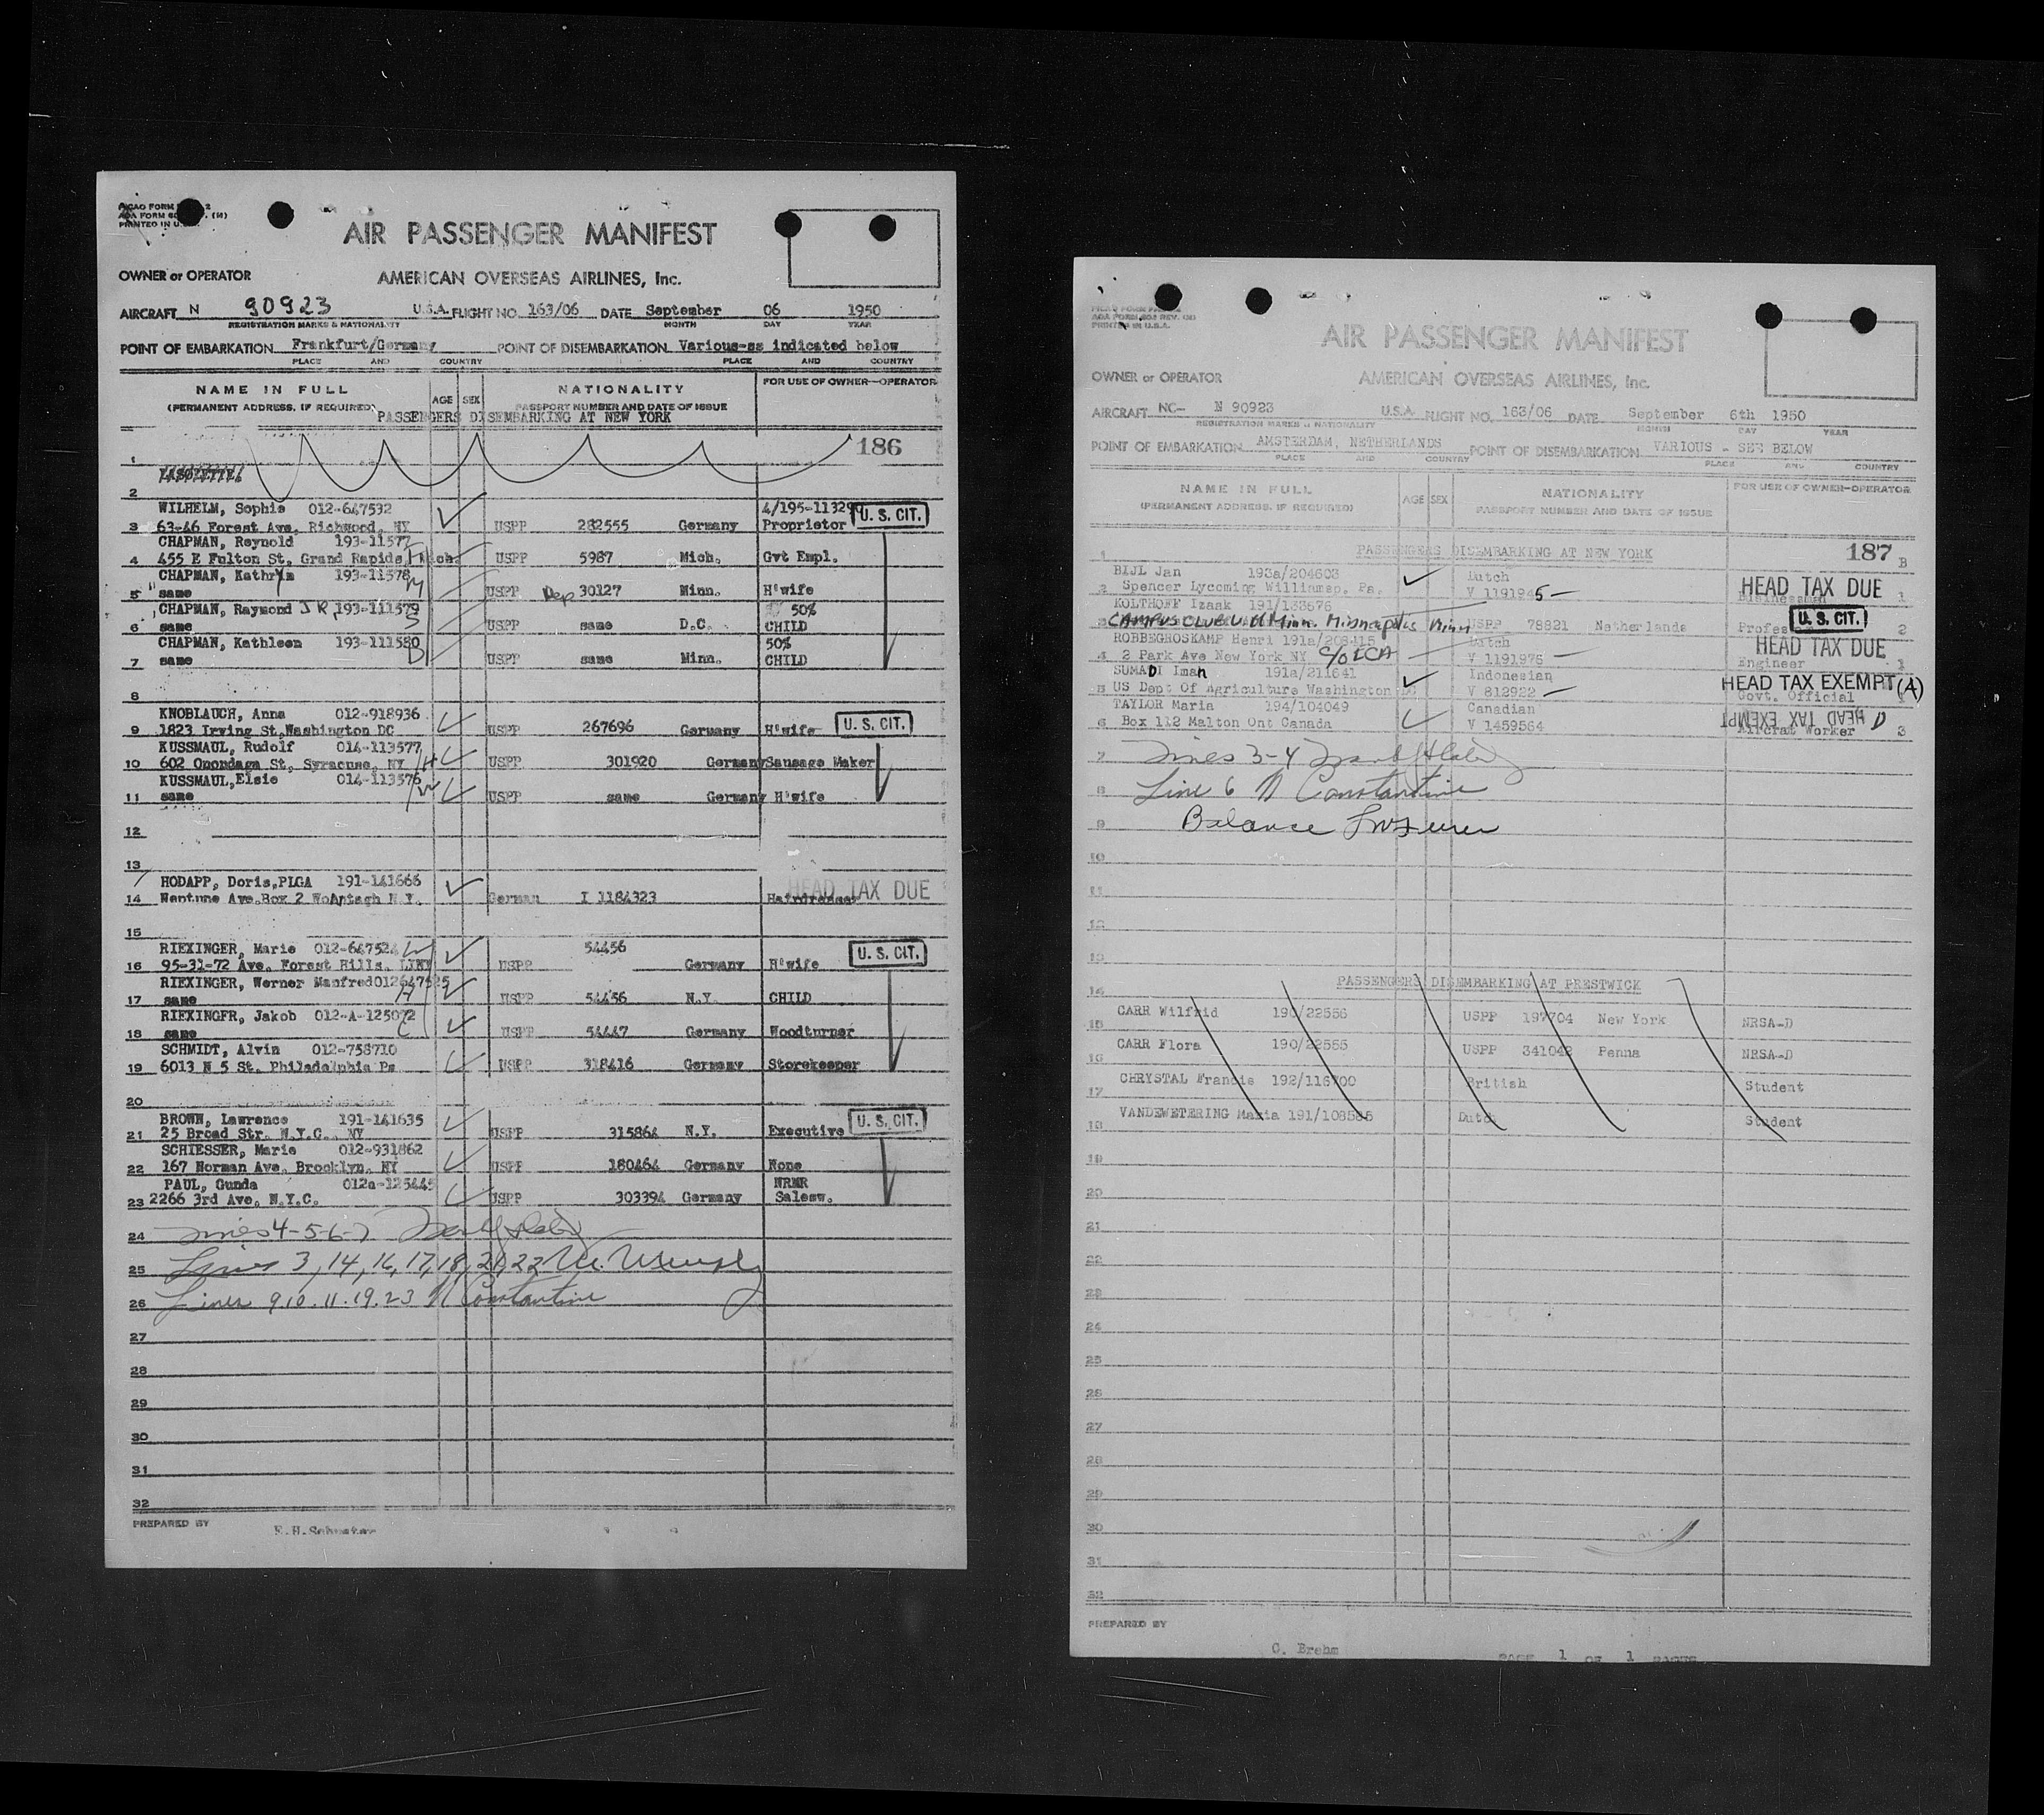 ICAO FORM 2
AOA FORM (M)
PRINTED IN U.S.A.
AIR PASSENGER MANIFEST
OWNER or OPERATOR AMERICAN OVERSEAS AIRLINES, Inc.
AIRCRAFT N 90923 U.S.A. FLIGHT NO. 163/06 DATE September 06 1950
REGISTRATION MARKS & NATIONALITY MONTH DAY YEAR
POINT OF EMBARKATION Frankfurt/Germany POINT OF DISEMBARKATION Various-as indicated below
PLACE AND COUNTRY PLACE AND COUNTRY
NAME IN FULL AGE SEX NATIONALITY FOR USE OF OWNER—OPERATOR
(PERMANENT ADDRESS, IF REQUIRED) PASSPORT NUMBER AND DATE OF ISSUE
PASSENGERS DISEMBARKING AT NEW YORK
186
1
2
WILHELM, Sophie 012-647532 4/195-11329
3 63-46 Forest Ave. Richwood, NY USPP 282555 Germany Proprietor U. S. CIT.
CHAPMAN, Reynold 193-11577
4 455 E Fulton St. Grand Rapids, Mich. USPP 5987 Mich. Gvt Empl.
CHAPMAN, Kathryn 193-11578
5 same USPP Dep 30127 Minn. H'wife
CHAPMAN, Raymond JR, 193-111579 50%
6 same USPP same D.C. CHILD
CHAPMAN, Kathleen 193-111580 50%
7 same USPP same Minn. CHILD
8
KNOBLAUCH, Anna 012-918936
9 1823 Irving St,Washington DC USPP 267696 Germany H'wife U. S. CIT.
KUSSMAUL, Rudolf 014-113577
10 602 Onondaga St, Syracuse, NY H USPP 301920 Germany Sausage Maker
KUSSMAUL,Elsie 014-113576
11 same W USPP same Germany H'wife
12
13
HODAPP, Doris,PLGA 191-141666 HEAD TAX DUE
14 Neptune Ave.Box 2 Wantagh N.Y. German I 1184323 Hairdresser
15
RIEXINGER, Marie 012-647524 54456 U. S. CIT.
16 95-31-72 Ave. Forest Hills, LINY USPP Germany H'wife
RIEXINGER, Werner Manfred 012647525
17 same USPP 54456 N.Y. CHILD
RIEXINGER, Jakob 012-A-125072
18 same USPP 54447 Germany Woodturner
SCHMIDT, Alvin 012-758710
19 6013 N 5 St. Philadelphia Pa USPP 318416 Germany Storekeeper
20
BROWN, Lawrence 191-141635 U. S. CIT.
21 25 Broad Str. N.Y.C. NY USPP 315864 N.Y. Executive
SCHIESSER, Marie 012-931862
22 167 Norman Ave. Brooklyn, NY USPP 180464 Germany None
PAUL, Gunda 012a-125445 NRMR
23 2266 3rd Ave. N.Y.C. USPP 303394 Germany Salesw.
24 Lines 4-5-6-7
25 Lines 3, 14, 16, 17, 18, 21, 22
26 Lines 9 10. 11. 19. 23 N Constantine
27
28
29
30
31
32
PREPARED BY E.H.Schuster
PRINTED IN U.S.A.
AIR PASSENGER MANIFEST
OWNER or OPERATOR AMERICAN OVERSEAS AIRLINES, Inc.
AIRCRAFT NC- N 90923 U.S.A. FLIGHT NO. 163/06 DATE September 6th 1950
REGISTRATION MARKS & NATIONALITY MONTH DAY YEAR
POINT OF EMBARKATION AMSTERDAM, NETHERLANDS POINT OF DISEMBARKATION VARIOUS - SEE BELOW
PLACE AND COUNTRY PLACE AND COUNTRY
NAME IN FULL AGE SEX NATIONALITY FOR USE OF OWNER—OPERATOR
(PERMANENT ADDRESS, IF REQUIRED) PASSPORT NUMBER AND DATE OF ISSUE
1 PASSENGERS DISEMBARKING AT NEW YORK 187 B
BIJL Jan 193a/204603 Dutch HEAD TAX DUE
2 Spencer Lycoming Williamsp. Pa. V 1191945 — Businessman 1
KOLTHOFF Izaak 191/133676 U. S. CIT.
3 CAMPUS CLUB U. of Minn. Minneapolis Minn USPP 78821 Netherlands Professor 2
ROBBEGROSKAMP Henri 191a/208415 Dutch HEAD TAX DUE
4 2 Park Ave New York NY C/o ECA V 1191976 — Engineer 1
SUMADI Iman 191a/211641 Indonesian HEAD TAX EXEMPT (A)
5 US Dept Of Agriculture Washington DC V 812922 — Govt. Official 1
TAYLOR Maria 194/104049 Canadian HEAD TAX EXEMPT D
6 Box 112 Malton Ont Canada V 1459564 Aircraft Worker 3
7 Lines 3-4
8 Line 6 N Constantine
9 Balance
10
11
12
13
14 PASSENGERS DISEMBARKING AT PRESTWICK
15 CARR Wilfrid 190/22556 USPP 197704 New York NRSA-D
16 CARR Flora 190/22565 USPP 341042 Penna NRSA-D
17 CHRYSTAL Francis 192/116700 British Student
18 VANDEWETERING Maria 191/108585 Dutch Student
19
20
21
22
23
24
25
26
27
28
29
30
31
32
PREPARED BY
C. Brehm PAGE 1 OF 1 PAGES